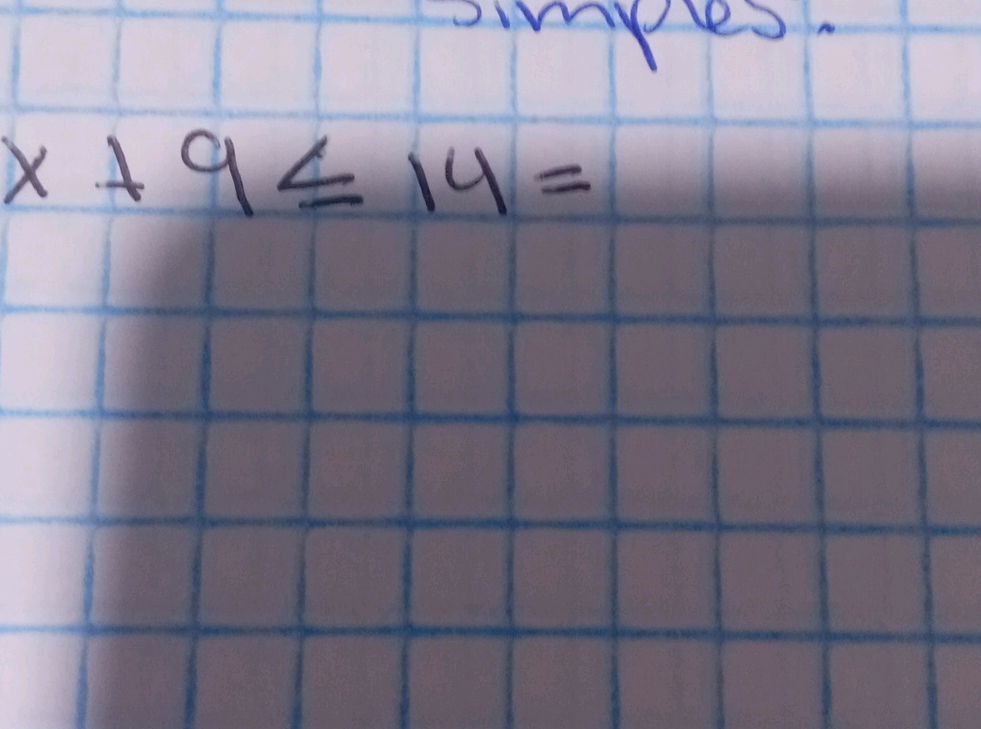 simples.
x + 9 ≤ 14 =